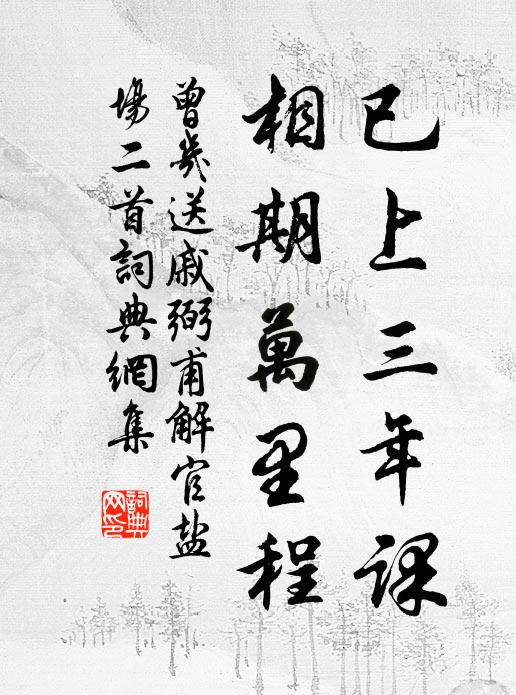 已上三年课
相期萬里程
曾幾送戚弼甫解官盐
場二首詞典網集
詞典
网印